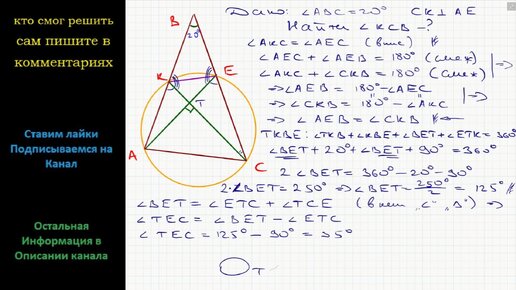 кто смог решить
сам пишите в
комментариях
Ставим лайки
Подписываемся на
Канал
Остальная
Информация в
Описании канала
B
20°
K
E
T
A
C
Дано: ∠ABC=20° CK⊥AE
Найти ∠KCB -?
∠AKC=∠AEC (впис)
∠AEC + ∠AEB = 180° (смеж)
∠AKC + ∠CKB = 180° (смеж)
⇒∠AEB = 180°-∠AEC
⇒∠CKB = 180° - ∠AKC
⇒ ∠AEB = ∠CKB
TKBE: ∠TKB+∠KBE+∠BET+∠ETK=360°
∠BET + 20°+∠BET + 90° = 360°
2∠BET = 360° - 20° - 90°
2·∠BET = 250° ⇒∠BET= 250°/2 = 125°
∠BET = ∠ETC + ∠TCE (внеш "∠" "Δ") ⇒
∠TEC = ∠BET - ∠ETC
∠TEC = 125° - 90° = 35°
т